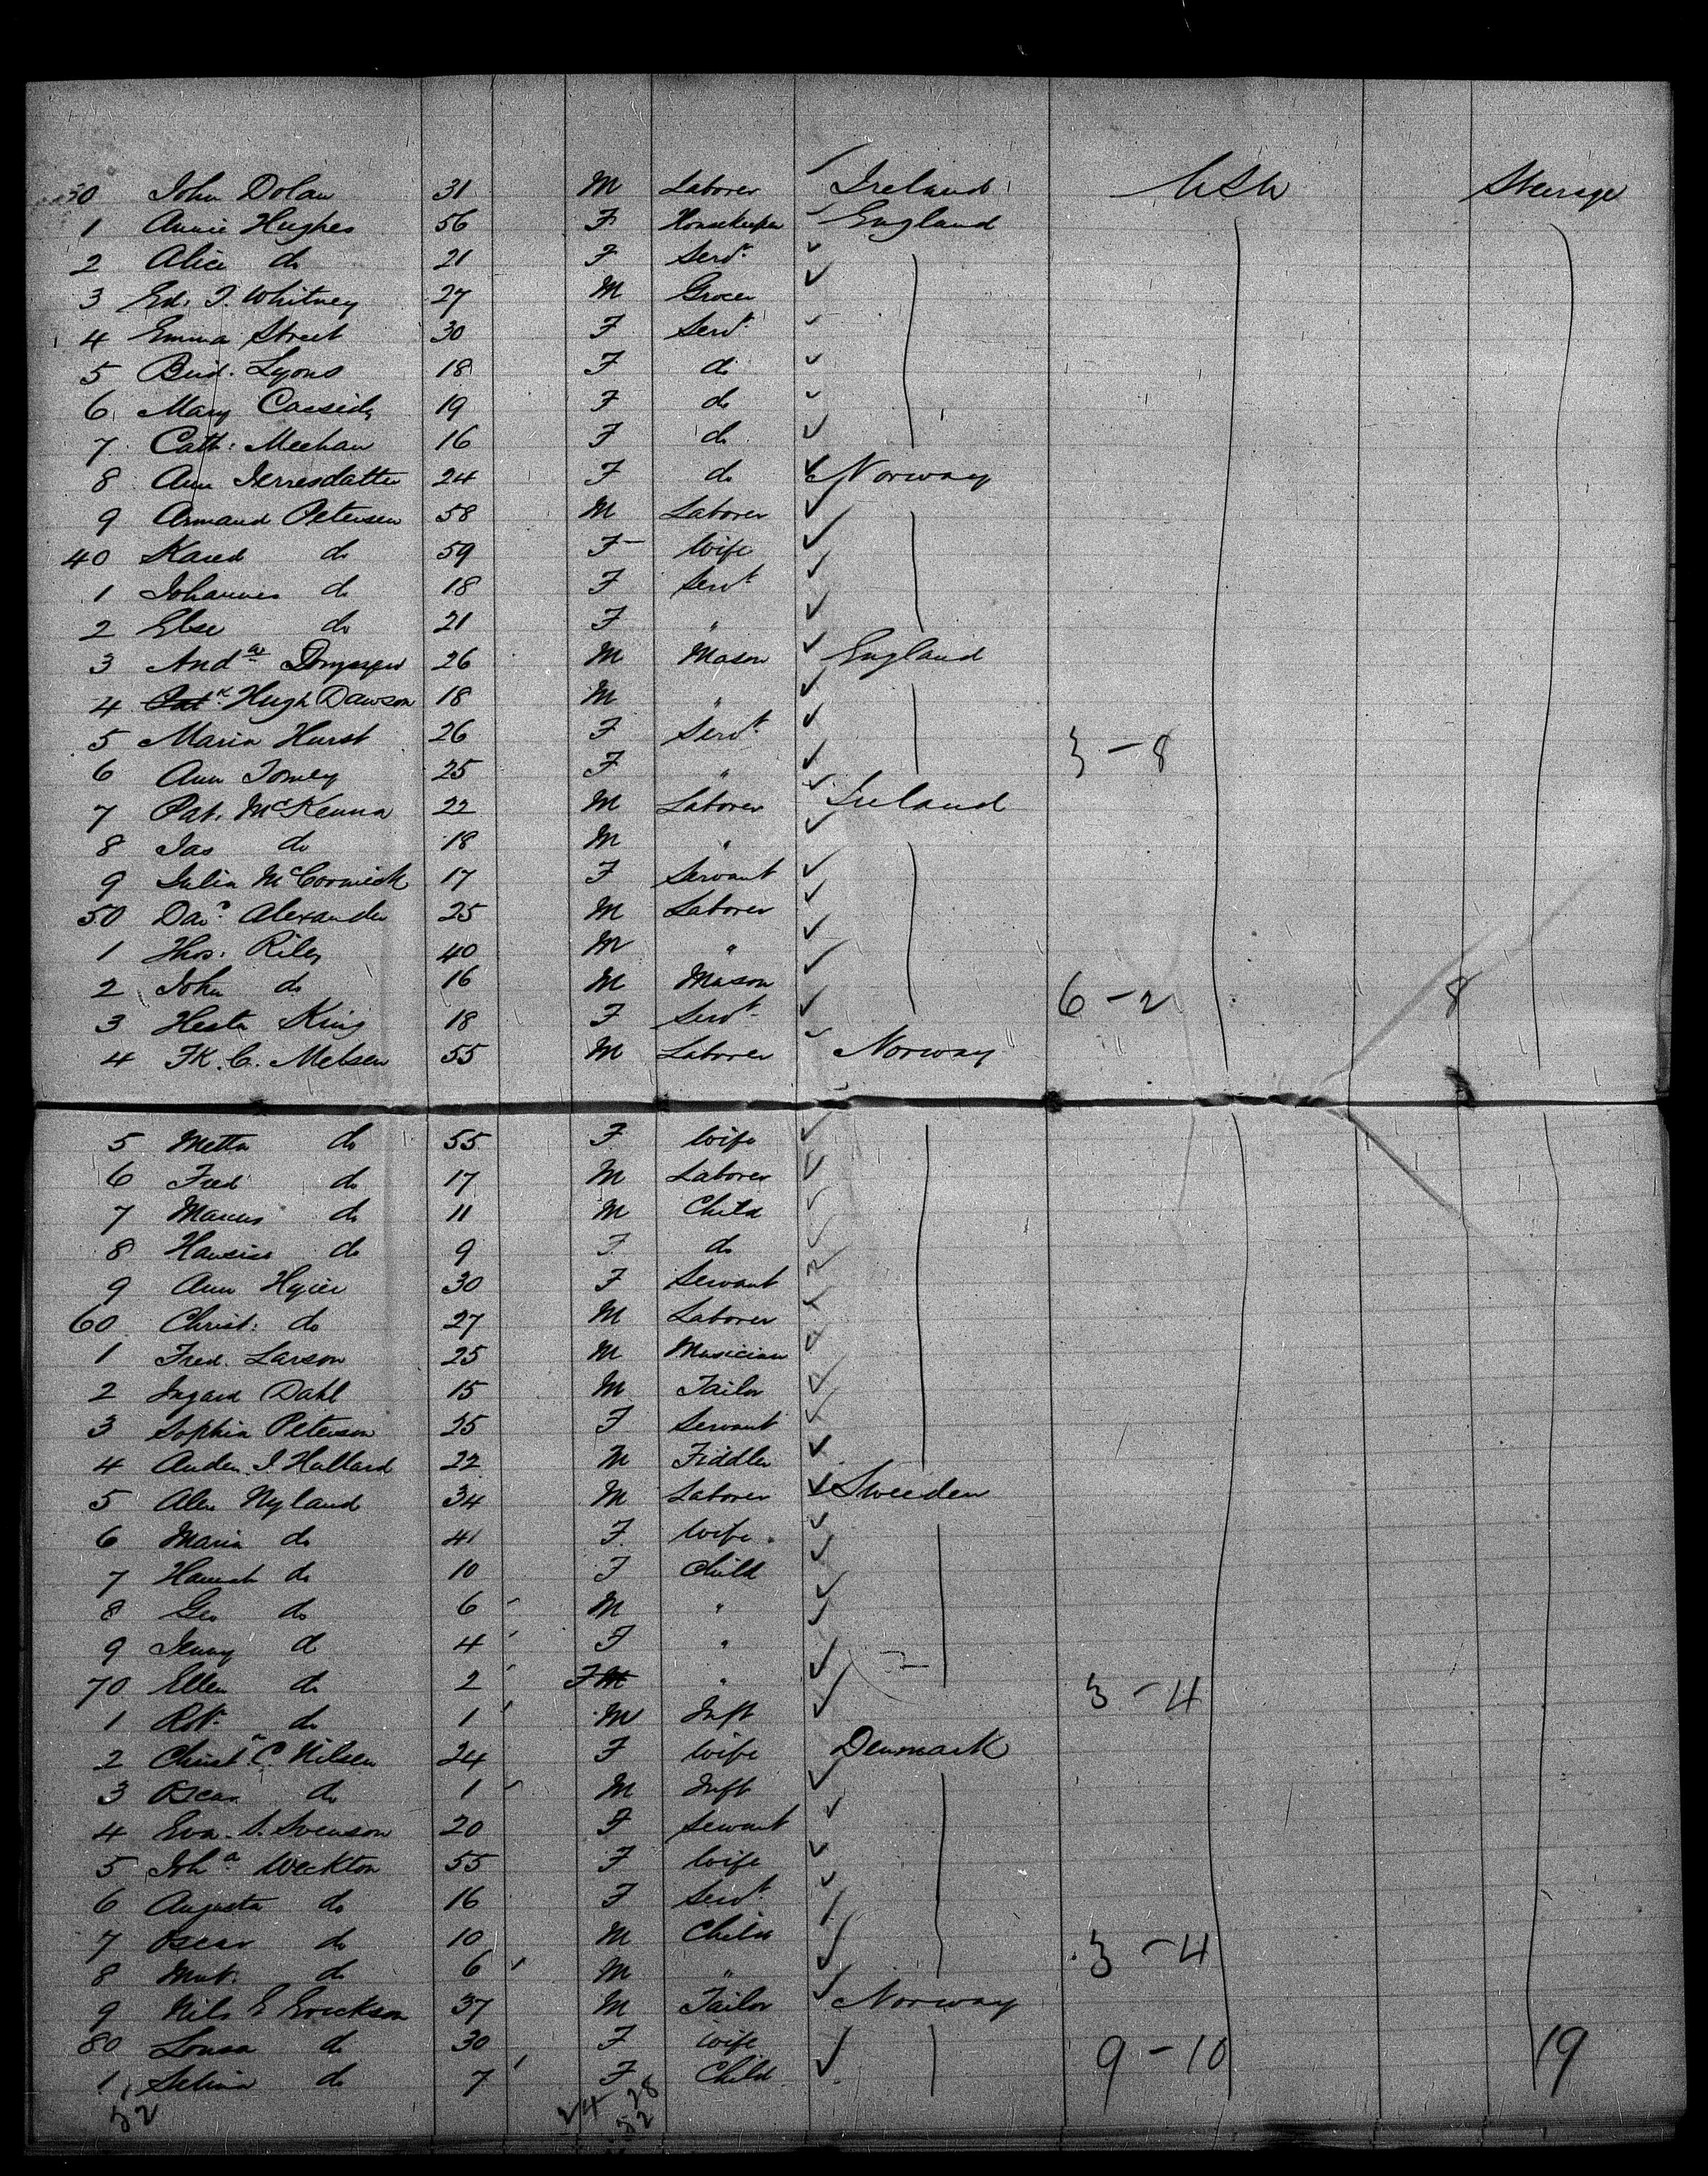 30 John Dolan 31 M Laborer Ireland USA Steerage
1 Annie Hughes 56 F Housekeeper England
2 Alice do 21 F Servt
3 Ed. T. Whitney 27 M Grocer
4 Emma Street 30 F Servt
5 Brid. Lyons 18 F do
6 Mary Cassidy 19 F do
7 Cath. Meehan 16 F do
8 Ann 24 F do Norway
9 Armand Petersen 58 M Laborer
40 Kared do 59 F Wife
1 Johannes do 18 F Servt
2 Else do 21 F "
3 Andw 26 M Mason England
4 Hugh Dawson 18 M "
5 Maria Hurst 26 F Servt 3 - 8
6 Ann Tomley 25 F "
7 Pat. McKenna 22 M Laborer Ireland
8 Jas do 18 M "
9 Julia McCormick 17 F Servant
50 Davd Alexander 25 M Laborer
1 Thos. Riley 40 M "
2 John do 16 M Mason 6 - 2 8
3 Hesta King 18 F Servt
4 Fk. C. Melsen 55 M Laborer Norway
5 Metta do 55 F Wife
6 Fred do 17 M Laborer
7 Marcus do 11 M Child
8 do 9 F do
9 Ann 30 F Servant
60 Christ. do 27 M Laborer
1 Fred. Larson 25 M Musician
2 Ingard Dahl 15 M Tailor
3 Sophia Peterson 25 F Servant
4 Anden. J. Hallard 22 M Fiddler
5 Alex Nyland 34 M Laborer Sweeden
6 Maria do 41 F Wife
7 Hannah do 10 F Child
8 Geo do 6 M "
9 Jenny do 4 F "
70 Ellen do 2 F M " 3 - 4
1 Robt do 1 M Inft
2 Christn C. Nilsen 24 F Wife Denmark
3 Oscar do 1 M Inft
4 Eva. S. Svenson 20 F Servant
5 Joha Weckton 55 F Wife
6 Augusta do 16 F Servt
7 Oscar do 10 M Child 3 - 4
8 do 6 M "
9 Nils E Erickson 37 M Tailor Norway
80 Lousa do 30 F Wife 9 - 10 19
1 Selina do 7 F Child
52 24 28
52